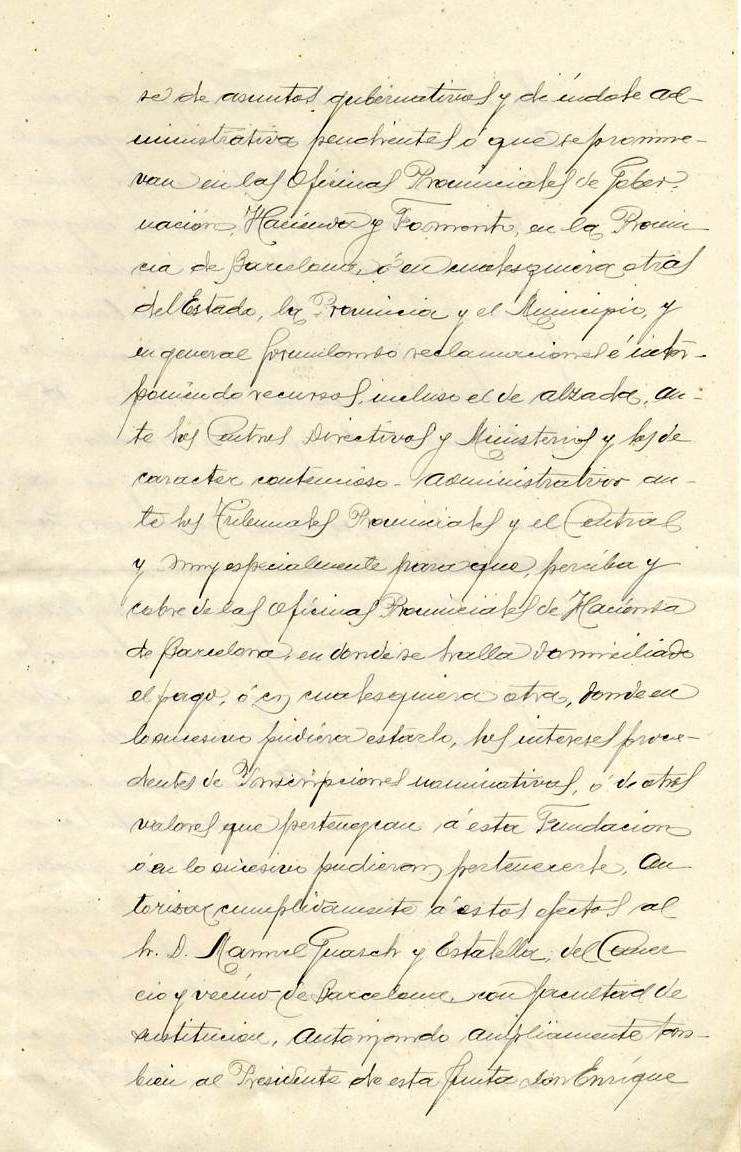 se de asuntos gubernativos y de índole ad-
ministrativa pendientes ó que se promue-
van en las Oficinas Provinciales de Gober-
nación, Hacienda y Fomento, en la Provin-
cia de Barcelona, ó en cualesquiera otras
del Estado, la Provincia y el Municipio, y
en general formulando reclamaciones é inter-
poniendo recursos, incluso el de alzada, an-
te los Centros Directivos y Ministerios y los de
caracter contencioso-administrativo an-
te los Tribunales Provinciales y el Central
y muy especialmente para que, perciba y
cobre de las Oficinas Provinciales de Hacienda
de Barcelona, en donde se halla domiciliado
el pago, ó en cualesquiera otra, donde en
lo sucesivo pudiera estarlo, los intereses proce-
dentes de Inscripciones nominativas, ó de otros
valores que pertenezcan á esta Fundación
ó en lo sucesivo pudieran pertenecerle. Au-
torizar cumplidamente á estos efectos al
Sr. D. Manuel Guasch y Estalella, del Comer
cio y vecino de Barcelona, con facultad de
sustitucion, autorizando ampliamente tam-
bien al Presidente de esta Junta don Enrique